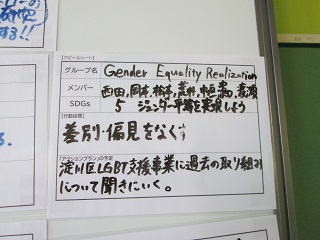 する!!
【アピールシート】
グループ名 Gender Equality Realization
メンバー 西田,岡本,
SDGs 5 ジェンダー平等を実現しよう
【行動目標】
差別・偏見をなくす
「アクションプラン」の予定
淀川区LGBT支援事業に過去の取り組み
について聞きにいく。